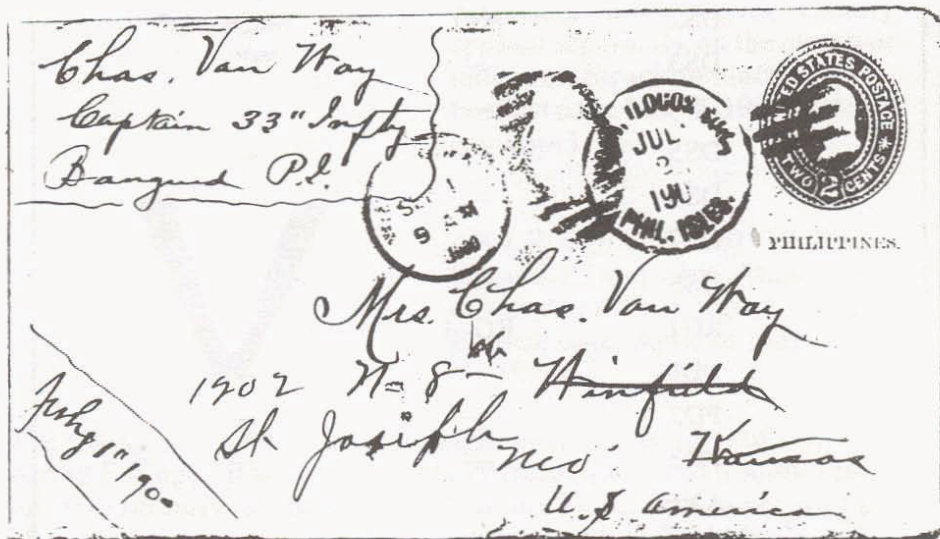 Chas. Van Way
Captain 33" Infty
Bangued P.I.
ILOCOS
JUL
190
PHIL. ISLES.
UNITED STATES POSTAGE
TWO 2 CENTS
PHILIPPINES.
Mrs. Chas. Van Way
1902 N- 8th Winfield
St Joseph Mo' Kansas
U.S America
July 1" 1900